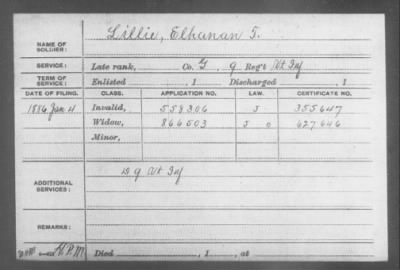 NAME OF SOLDIER: Lillie, Elhanan T.
SERVICE: Late rank, Co. G, 9 Reg't Vt Inf
TERM OF SERVICE: Enlisted , 1 Discharged , 1
DATE OF FILING. CLASS. APPLICATION NO. LAW. CERTIFICATE NO.
1886 Jan 4 Invalid, 558306 J 355647
Widow, 866503 J o 627646
Minor,
ADDITIONAL SERVICES: D 9 Vt Inf
REMARKS:
Died , 1 , at